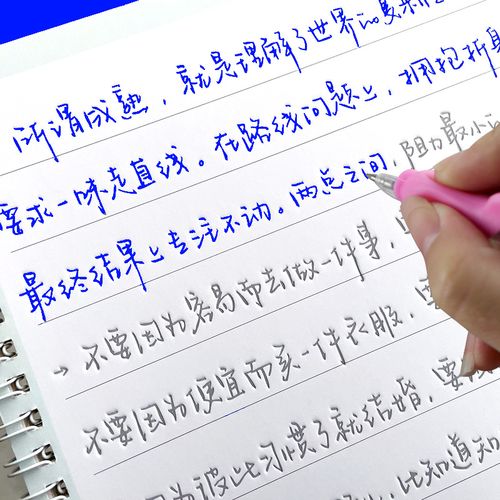 所谓成熟，就是理解了世界的复杂
要求一味走直线。在路线问题上，拥抱折
最终结果上专注不动。两点之间，阻力最小
→不要因为容易而去做一件事，
不要因为便宜而买一件衣服，
因为彼此习惯了就结婚，要
比知道